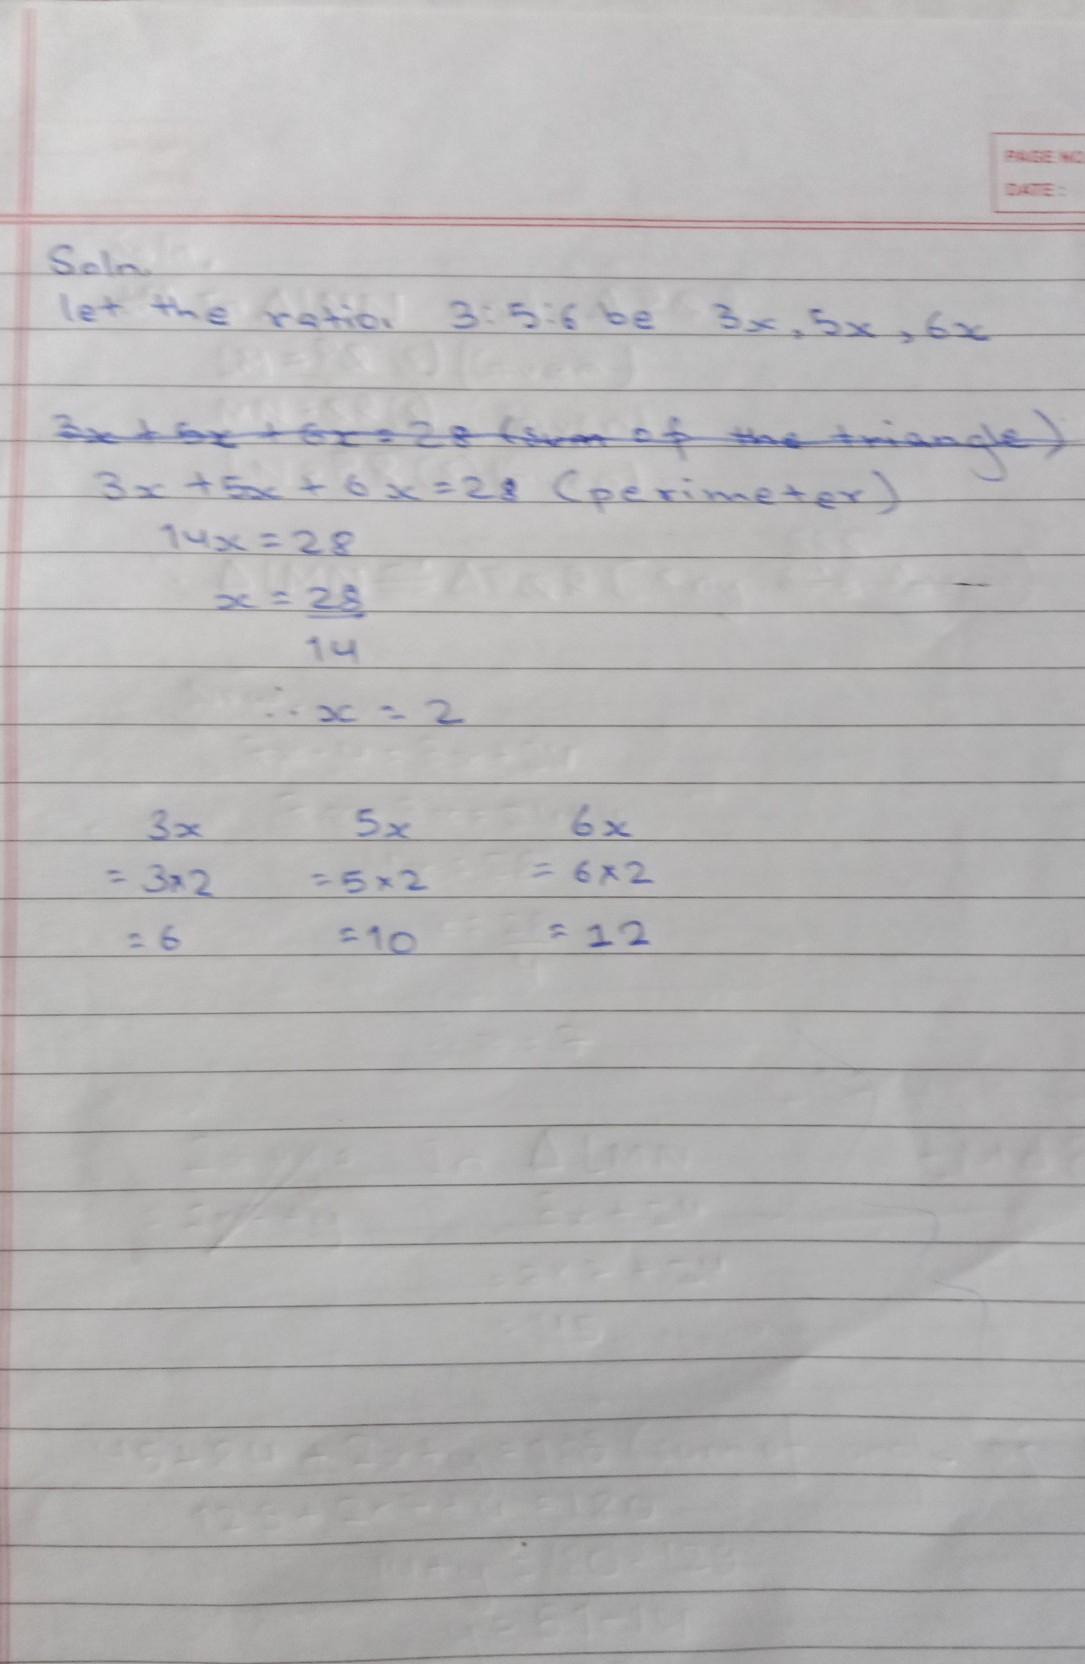 PAGE NO
DATE:
Soln
let the ratio. 3:5:6 be 3x, 5x, 6x
3x + 5x + 6x = 28 (sum of the triangle)
3x + 5x + 6x = 28 (perimeter)
14x = 28
x = 28
14
∴ x = 2
3x 5x 6x
= 3×2 = 5×2 = 6×2
= 6 = 10 = 12